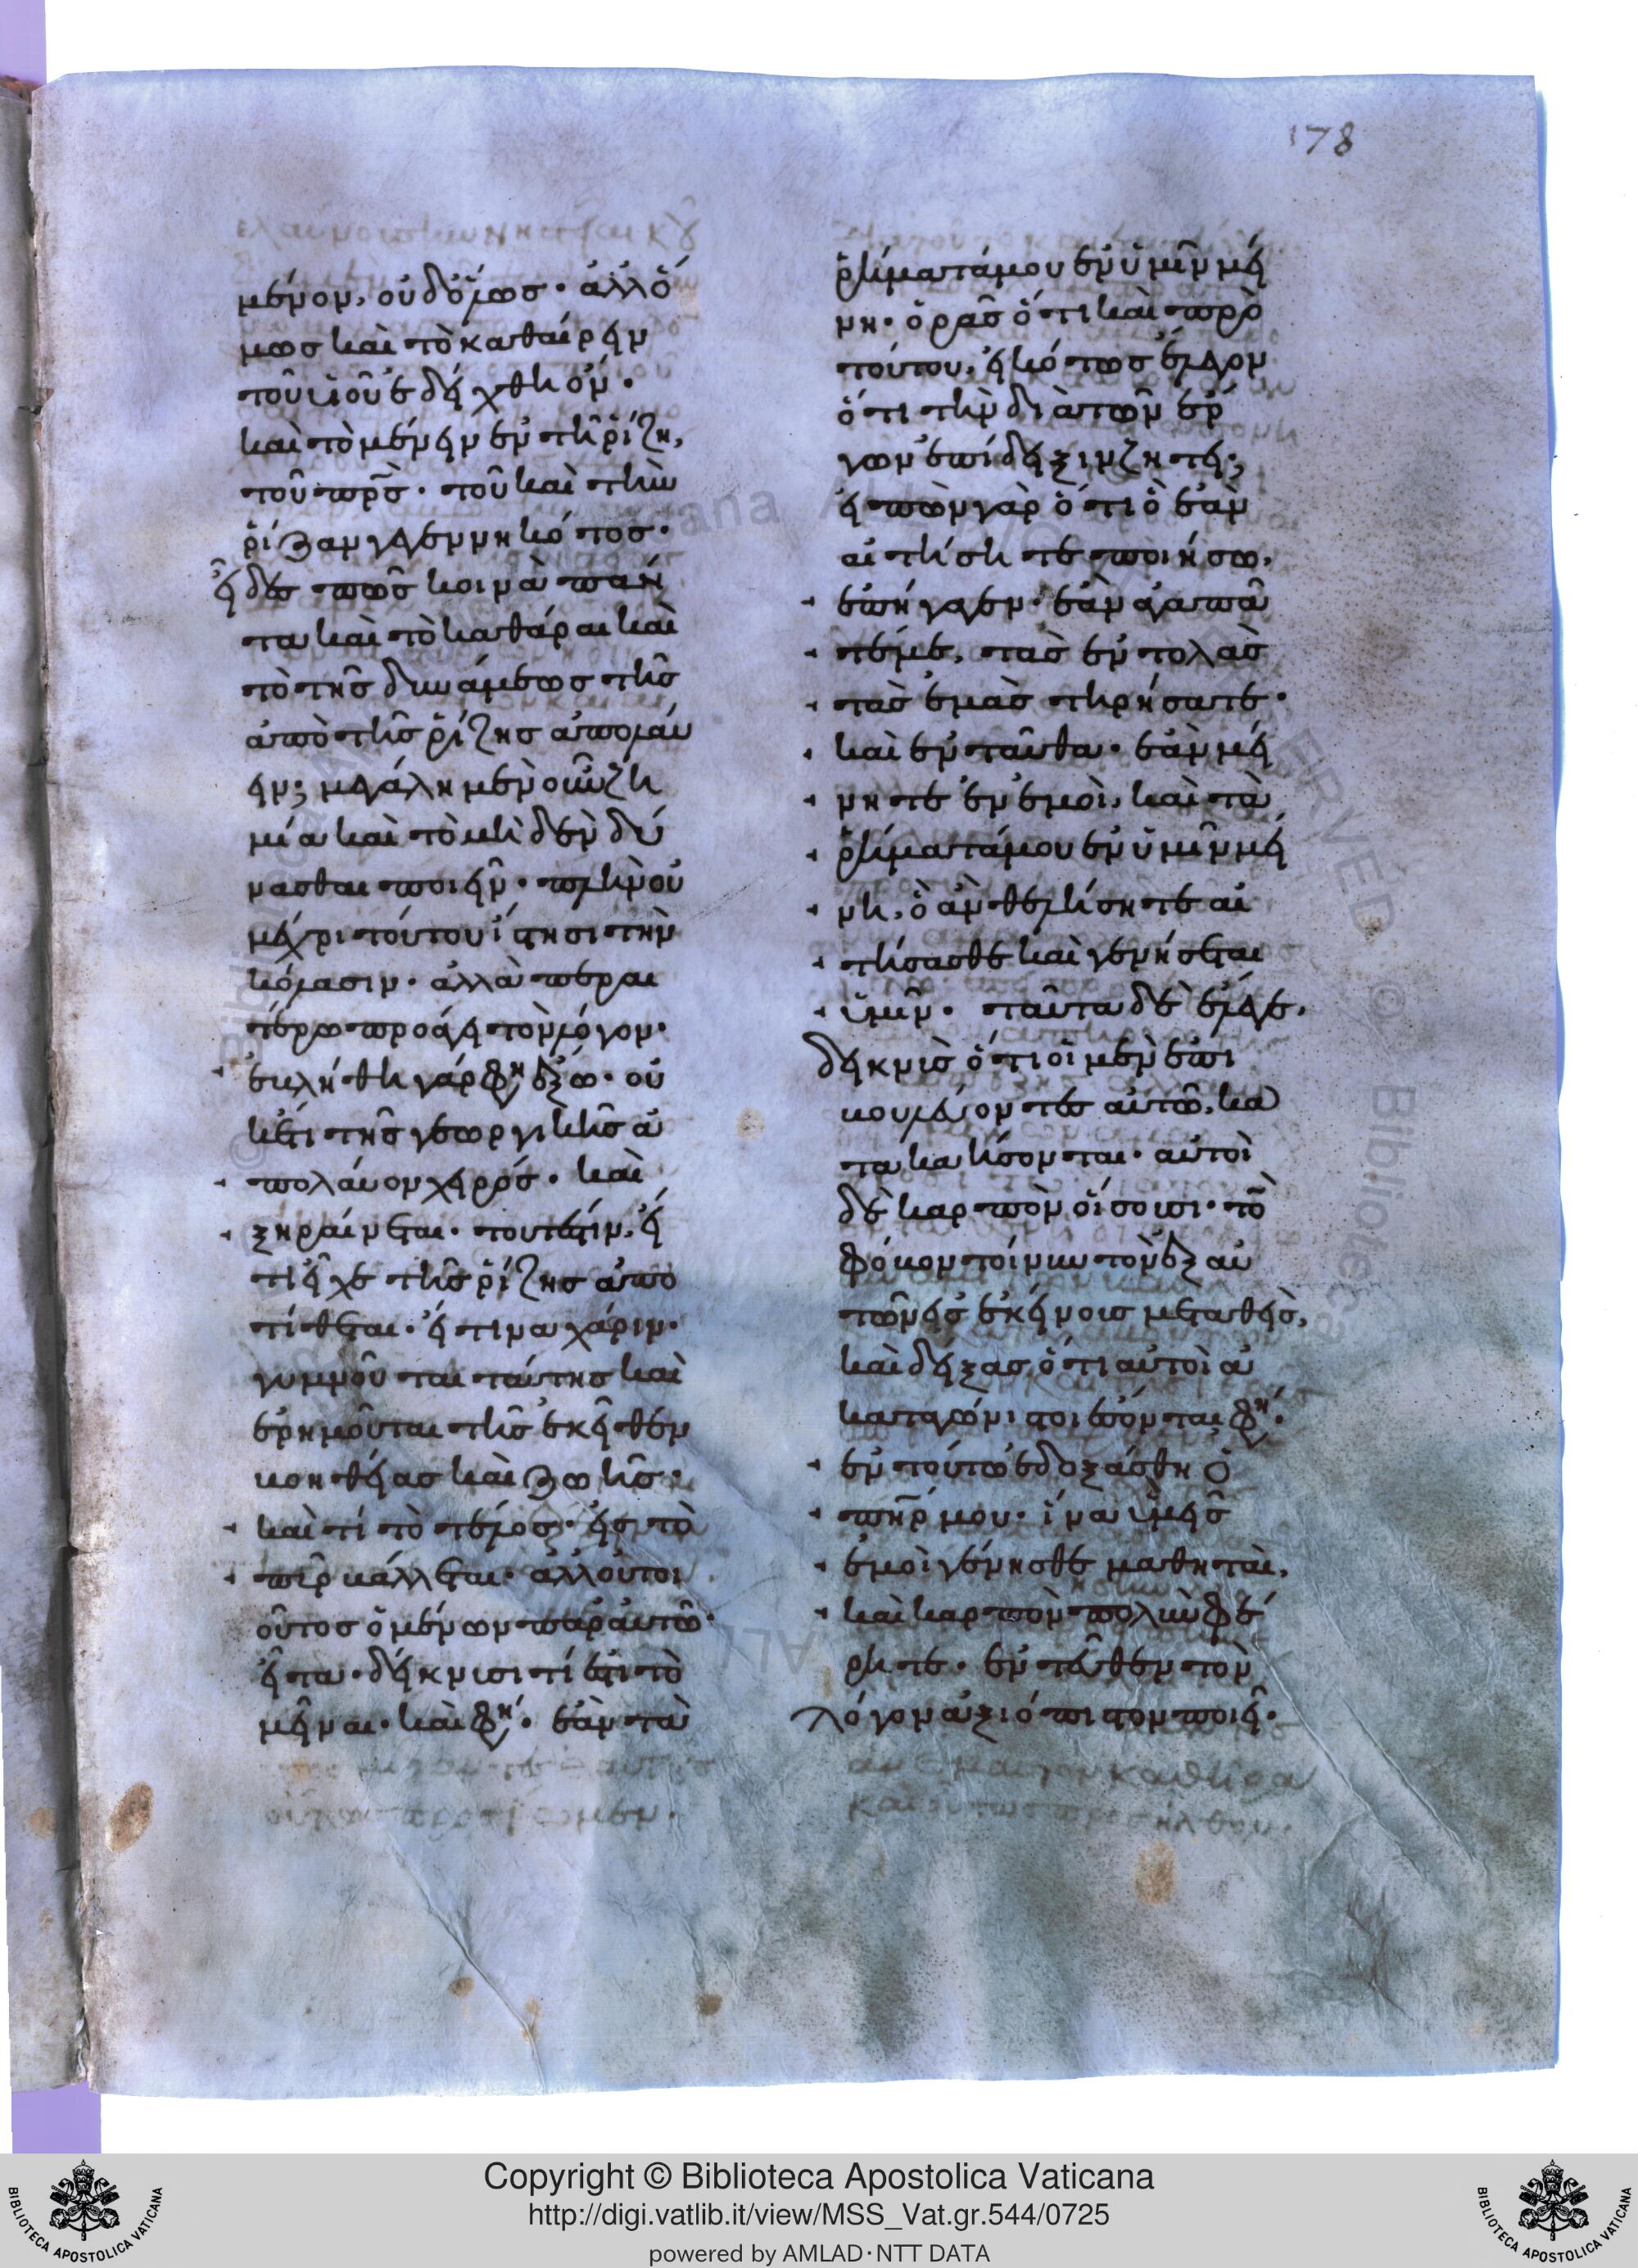 178
μένον, οὐδόλως· ἀλλό
μως καὶ τὸ καθαίρειν
τοῦ υἱοῦ ἐδείχθη ὄν·
καὶ τὸ μένειν ἐν τῆ ῥίζη,
τοῦ πρς· τοῦ καὶ τὴν
ῥίζαν γεγεννηκότος·
εἶδες πῶς κοινὰ πάν
τα καὶ τὸ καθάραι καὶ
τὸ τῆς δυνάμεως τῆς
ἀπὸ τῆς ῥίζης ἀπολαύ
ειν; μεγάλη μὲν οὖν ζη
μία καὶ τὸ μὴ δὲν δύ
νασθαι ποιεῖν· πλὴν οὐ
μέχρι τούτου ἵστησι τὴν
κόλασιν· ἀλλὰ περαι
τέρω προάγει τὸν λόγον·
ἐκλήθη γάρ φη ἔξω· οὐ
κέτι τῆς γεωργικῆς ἀ
πολαύον χειρός· καὶ
ξηραίνεται· τουτέστιν, εἴ
τι εἶχε τῆς ῥίζης ἀπο
τίθεται· εἴ τινα χάριν·
γυμνοῦται ταύτης καὶ
ἐρημοῦται τῆς ἐκεῖθεν
βοηθείας καὶ ζωῆς·
καὶ τί τὸ τέλος· εἰς τὸ
πῦρ βάλλεται· ἀλλοὔτοι
οὗτος ὁ μένων παρ αὐτῶ·
εἶτα· δείκνυσι τί ἐστι τὸ
μεῖναι· καὶ φη· ἐὰν τὰ
ῥήματά μου ἐν ὑμῖν μεί
νη· ὁρᾶς ὅτι καὶ πρὸ
τούτου, εἰκότως ἔλεγον
ὅτι τὴν διὰ τῶν ἔρ
γων ἐπίδειξιν ζητεῖ;
εἰπὼν γὰρ ὅτι ὃ ἐὰν
αἰτήσητε ποιήσω,
ἐπήγαγεν· ἐὰν ἀγαπᾶ
τέ με, τὰς ἐντολὰς
τὰς ἐμὰς τηρήσατε·
καὶ ἐνταῦθα· ἐὰν μεί
νητε ἐν ἐμοὶ, καὶ τὰ
ῥήματά μου ἐν ὑμῖν μεί
νη, ὃ ἂν θελήσητε αἰ
τήσασθε καὶ γενήσεται
ὑμῖν· ταῦτα δὲ ἔλεγε,
δεικνὺς ὅτι οἱ μὲν ἐπι
βουλεύοντες αὐτῶ, κα
τακαήσονται· αὐτοὶ
δὲ καρπὸν οἴσουσι· τὸ
φόβον τοίνυν τὸν ἐξ αὐ
τῶν εἰς ἐκείνοις μεταθεὶς,
καὶ δείξας ὅτι αὐτοὶ ἀ
καταγώνιστοι ἔσονται φη·
ἐν τούτω ἐδοξάσθη ὁ
πηρ μου· ἵνα ὑμεῖς
ἐμοὶ γένησθε μαθηταὶ,
καὶ καρπὸν πολὺν φέ
ρητε· ἐντεῦθεν τὸν
λόγον ἀξιόπιστον ποιεῖ·
Copyright © Biblioteca Apostolica Vaticana
http://digi.vatlib.it/view/MSS_Vat.gr.544/0725
powered by AMLAD·NTT DATA
BIBLIOTECA APOSTOLICA VATICANA
BIBLIOTECA APOSTOLICA VATICANA